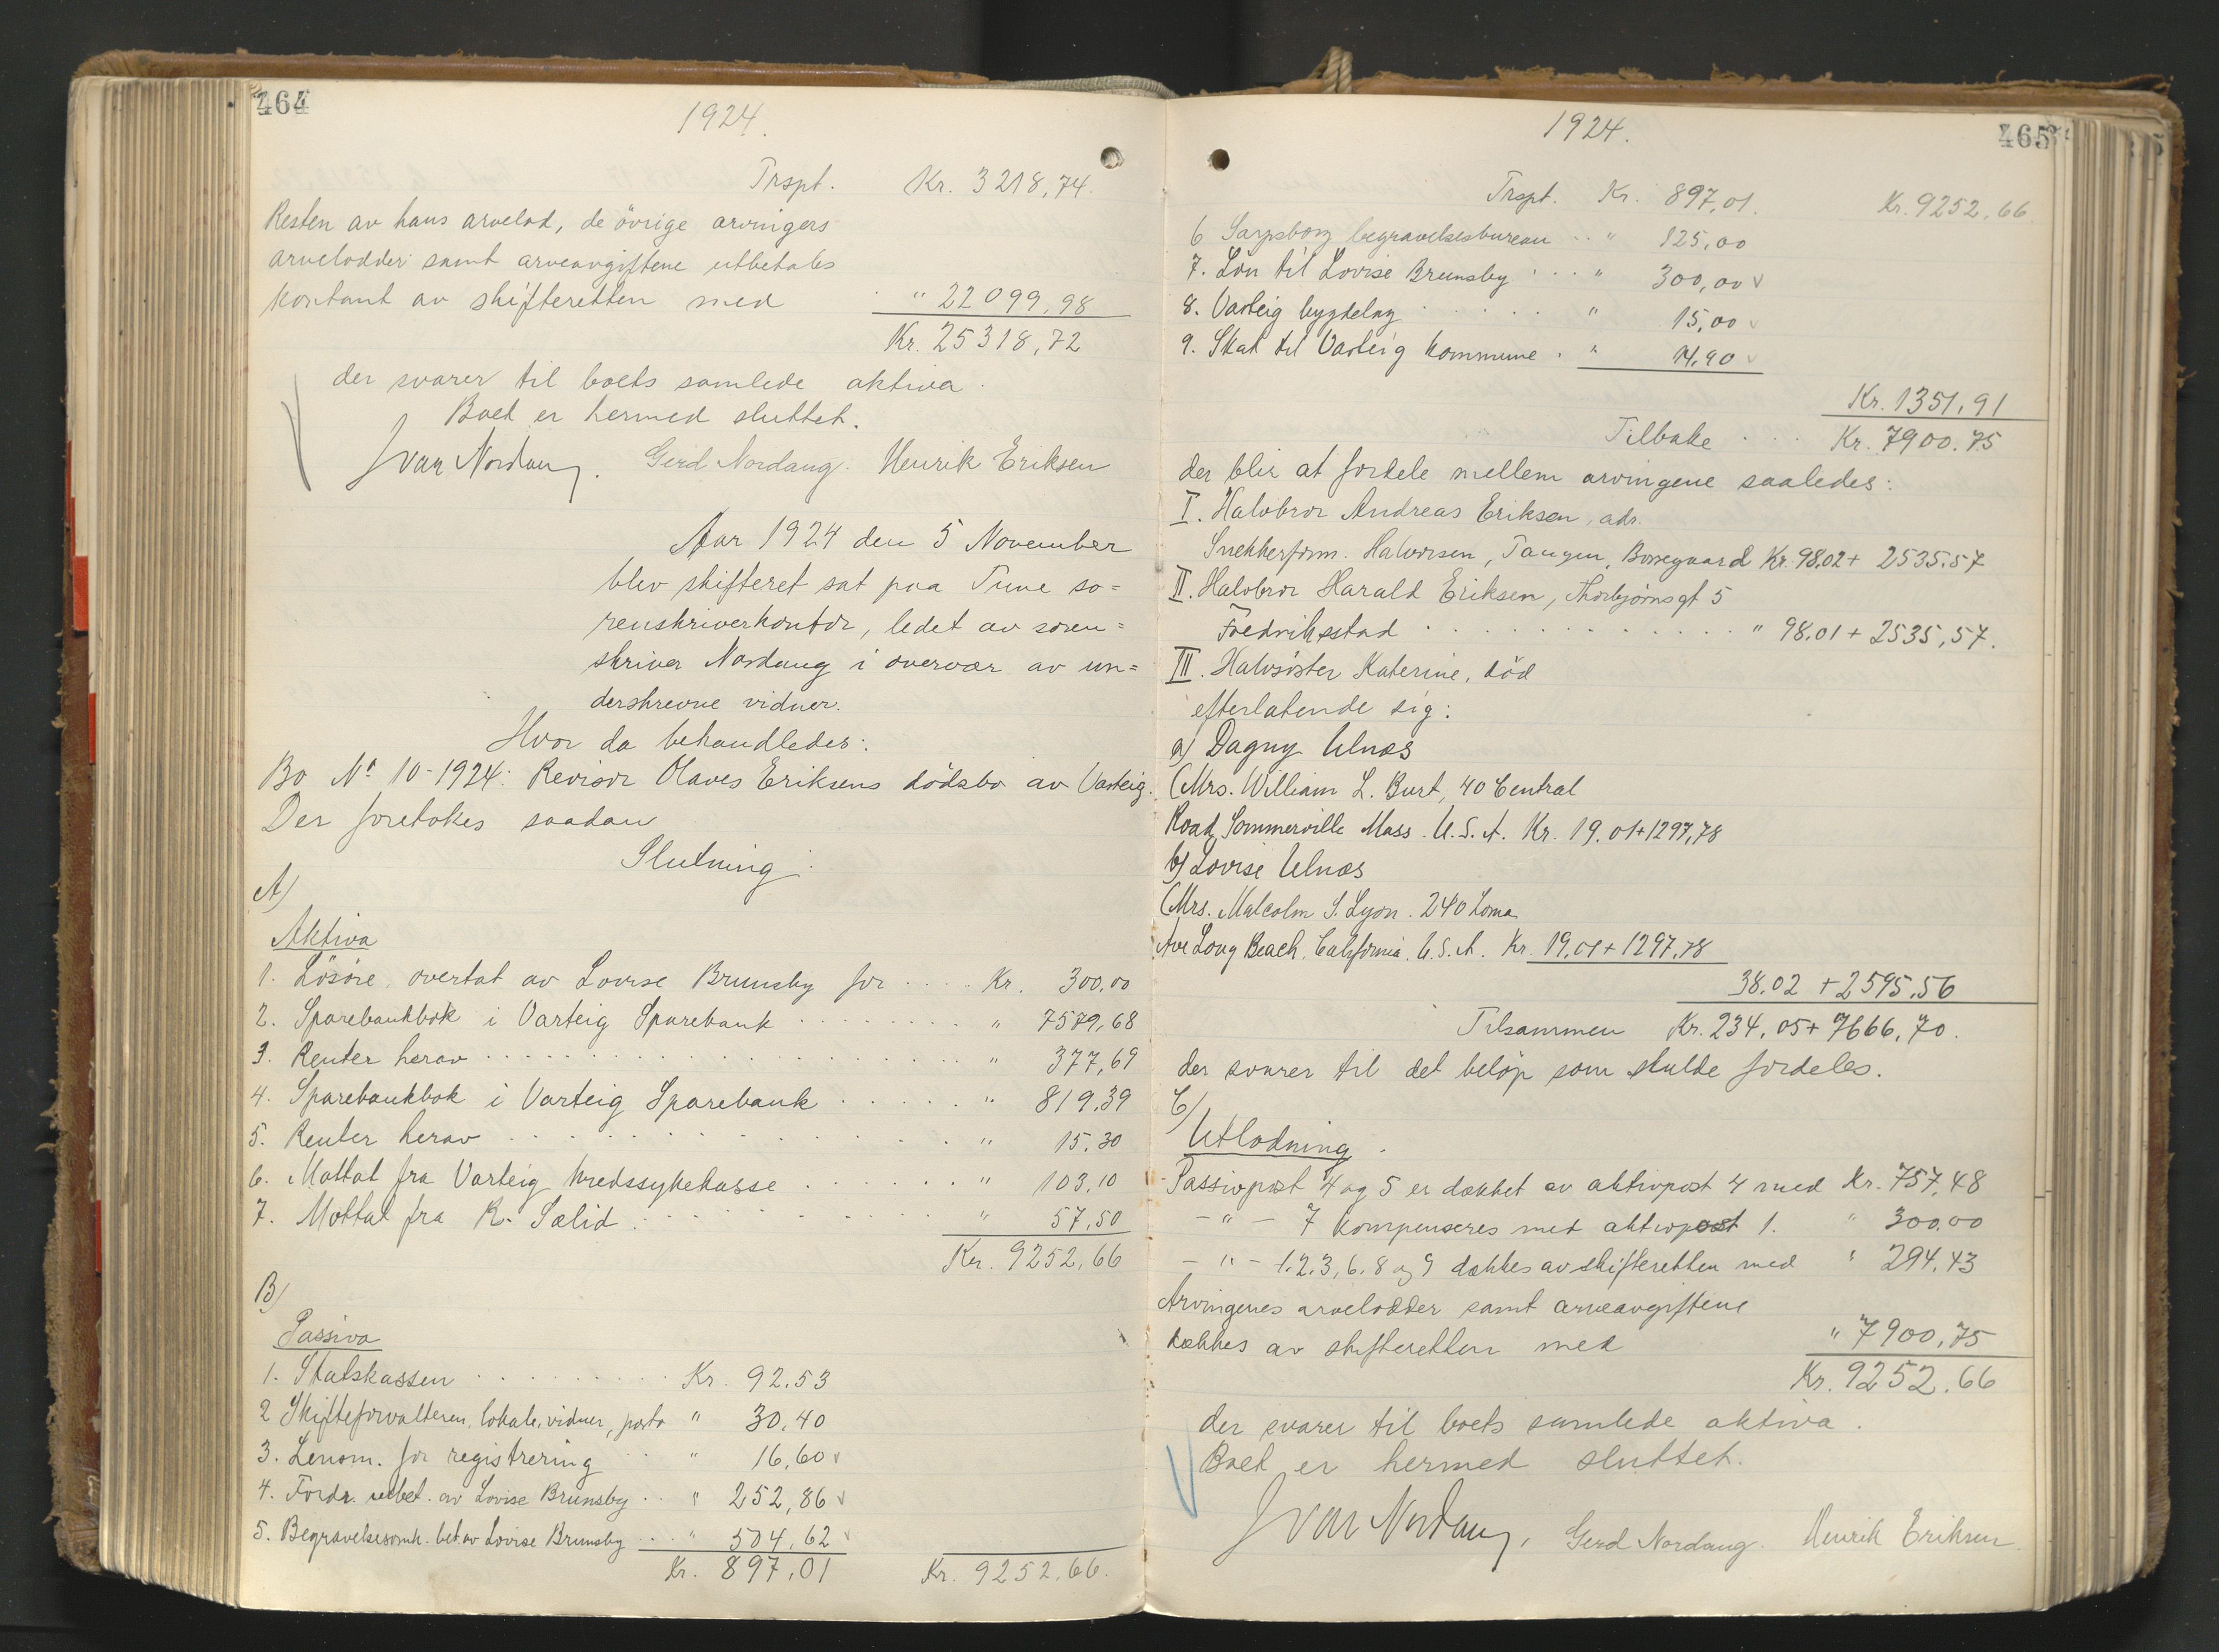 464
1924.
Trspt. Kr. 3218,74.
Resten av hans arvelod, de övrige arvingers
arvelodder samt arveavgiftene utbetales
kontant av skifteretten med " 22099,98
Kr. 25318,72
der svarer til boets samlede aktiva.
Boet er hermed sluttet.
Ivar Nordang. Gerd Nordang. Henrik Eriksen
Aar 1924 den 5 November
blev skifteret sat paa Tune so=
renskriverkontor, ledet av soren=
skriver Nordang i overvær av un=
derskrevne vidner.
Hvor da behandledes:
Bo No 10-1924: Revisor Olaves Eriksens dödsbo av Varteig.
Der foretokes saadan
Slutning:
A)
Aktiva
1. Lösöre, overtat av Lovise Brunsby for .... Kr. 300,00
2. Sparebankbok i Varteig Sparebank ........ " 7579,68
3. Renter herav .................... " 377,69
4. Sparebankbok i Varteig Sparebank ..... " 819,39
5. Renter herav ................. " 15,30
6. Mottat fra Varteig kredssykekasse ...... " 103,10
7. Mottat fra K. Sælid ............ " 57,50
Kr. 9252,66
B)
Passiva
1. Statskassen ......... Kr. 92.53
2 Skifteforvalteren, lokale, vidner, porto " 30,40
3. Lensm. for registrering .. " 16,60 v
4. Fordr. utbet. av Lovise Brunsby .. " 252,86 v
5. Begravelsesomk. bet. av Lovise Brunsby ... " 504,62 v
Kr. 897,01 Kr. 9252,66.
465
1924.
Trspt. Kr. 897,01. Kr. 9252,66
6 Sarpsborg begravelsesbureau .. " 125,00
7. Lön til Lovise Brunsby ... " 300,00 v
8. Varteig bygdelag ..... " 15,00 v
9. Skat til Varteig kommune . " 14,90 v
Kr. 1351,91
Tilbake ... Kr. 7900.75
der blir at fordele mellem arvingene saaledes:
I. Halvbror Andreas Eriksen, adr.
Snekkerform. Halvorsen, Tangen, Borregaard Kr. 98.02 + 2535.57
II. Halvbror Harald Eriksen, Thorbjørnsgt 5
Fredrikstad ............. " 98,01 + 2535,57.
III. Halvsöster Katerine, död
efterlatende sig:
a) Dagny Ulnæs
(Mrs. William L. Burt, 40 Central
Road, Sommerville Mass. U.S.A. Kr. 19.01+1297,78
b) Lovise Ulnæs
(Mrs. Malcolm S. Lyon. 240 Loma
Ave Long Beach, California. U.S.A. Kr. 19,01 + 1297,78
38.02 + 2595,56
Tilsammen Kr. 234,05 + 7666,70.
der svarer til det beløp som skulde fordeles.
C)
Utlodning.
Passivpost 4 og 5 er dækket av aktivpost 4 med Kr. 757,48
- " - 7 kompenseres med aktivpost 1. " 300.00
- " - 1.2.3,6.8 og 9 dækkes av skifteretten med " 294,43
Arvingenes arvelodder samt arveavgiftene
dækkes av skifteretten med " 7900,75
Kr. 9252.66
der svarer til boets samlede aktiva.
Boet er hermed sluttet.
Ivar Nordang, Gerd Nordang. Henrik Eriksen.